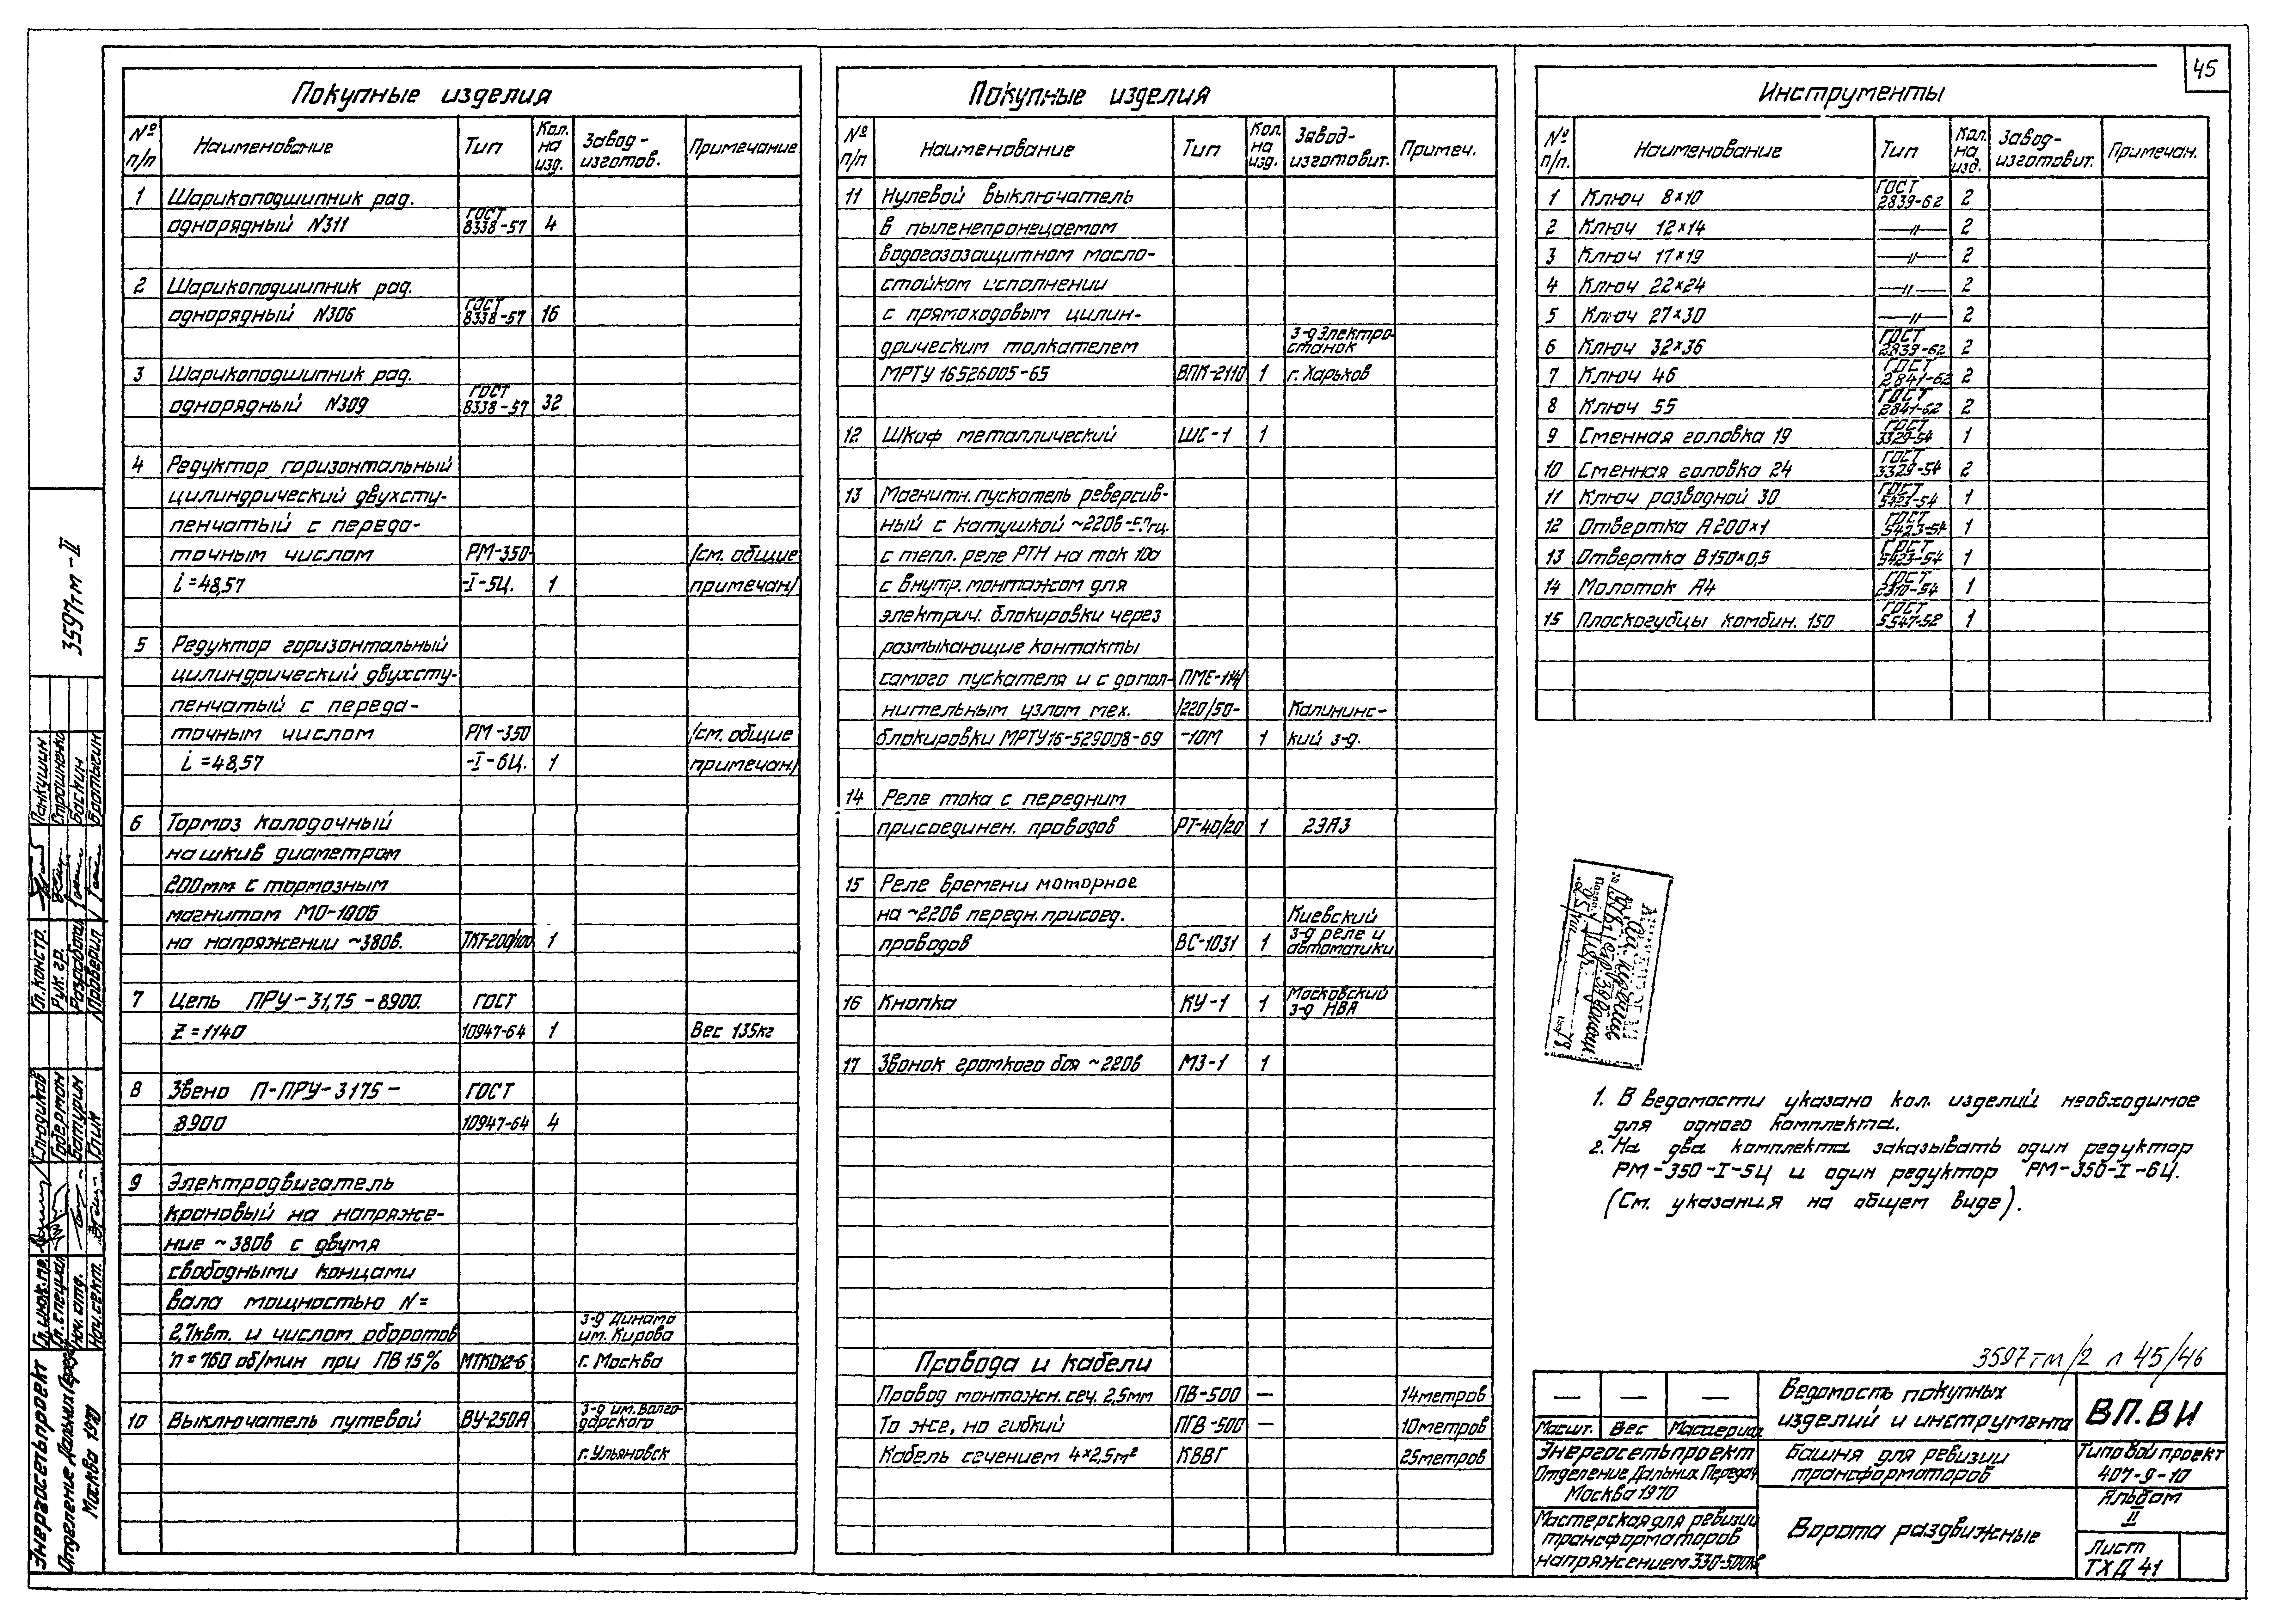 45
Покупные изделия
№ п/п Наименование Тип Кол. на изд. Завод-изготов. Примечание
1 Шарикоподшипник рад.
однорядный N311 ГОСТ 8338-57 4
2 Шарикоподшипник рад.
однорядный N306 ГОСТ 8338-57 16
3 Шарикоподшипник рад.
однорядный N309 ГОСТ 8338-57 32
4 Редуктор горизонтальный
цилиндрический двухсту-
пенчатый с переда-
точным числом РМ-350- /см. общие
i=48,57 -I-5Ц. 1 примечан./
5 Редуктор горизонтальный
цилиндрический двухсту-
пенчатый с переда-
точным числом РМ-350 /см. общие
i=48,57 -I-6Ц. 1 примечан./
6 Тормоз колодочный
на шкив диаметром
200мм с тормозным
магнитом МО-100Б
на напряжении ~380в. ТКТ-200/100 1
7 Цепь ПРУ-31,75-8900. ГОСТ
Z=1140 10947-64 1 Вес 135кг
8 Звено П-ПРУ-3175- ГОСТ
8900 10947-64 4
9 Электродвигатель
крановый на напряже-
ние ~380в с двумя
свободными концами
вала мощностью N=
2,7квт. и числом оборотов з-д Динамо им. Кирова
n=760 об/мин при ПВ 15% МТКD12-6 г. Москва
10 Выключатель путевой ВУ-250А з-д им. Волго-дарского
г. Ульяновск
Покупные изделия
№ п/п Наименование Тип Кол. на изд. Завод-изготовит. Примеч.
11 Нулевой выключатель
в пыленепронецаемом
водогазозащитном масло-
стойком исполнении
с прямоходовым цилин-
дрическим толкателем з-д Электро-станок
МРТУ 16526005-65 ВПК-2110 1 г. Харьков
12 Шкиф металлический ШС-1 1
13 Магнитн. пускатель реверсив-
ный с катушкой ~220в-50гц.
с тепл. реле РТН на ток 10а
с внутр. монтажом для
электрич. блокировки через
размыкающие контакты
самого пускателя и с допол- ПМЕ-114/
нительным узлом мех. /220/50- Калининс-
блокировки МРТУ16-529008-69 -10М 1 кий з-д.
14 Реле тока с передним
присоединен. проводов РТ-40/20 1 ЧЭАЗ
15 Реле времени моторное
на ~220в передн. присоед. Киевский
проводов ВС-1031 1 з-д реле и автоматики
16 Кнопка КУ-1 1 Московский з-д НВА
17 Звонок громкого боя ~220в МЗ-1 1
Провода и кабели
Провод монтажн. сеч. 2,5мм ПВ-500 — 14метров
То же, но гибкий ПГВ-500 — 10метров
Кабель сечением 4×2,5м² КВВГ 25метров
Инструменты
№ п/п. Наименование Тип Кол. на изд. Завод-изготовит. Примечан.
1 Ключ 8×10 ГОСТ 2839-62 2
2 Ключ 12×14 —"— 2
3 Ключ 17×19 —"— 2
4 Ключ 22×24 —"— 2
5 Ключ 27×30 —"— 2
6 Ключ 32×36 ГОСТ 2839-62 2
7 Ключ 46 ГОСТ 2841-62 2
8 Ключ 55 ГОСТ 2841-62 2
9 Сменная головка 19 ГОСТ 3329-54 1
10 Сменная головка 24 ГОСТ 3329-54 2
11 Ключ разводной 30 ГОСТ 5423-54 1
12 Отвертка А200×1 ГОСТ 5423-54 1
13 Отвертка В150×0,5 ГОСТ 5423-54 1
14 Молоток А4 ГОСТ 2310-54 1
15 Плоскогубцы комбин. 150 ГОСТ 5547-52 1
1. В ведомости указано кол. изделий необходимое
для одного комплекта.
2. На два комплекта заказывать один редуктор
РМ-350-I-5Ц и один редуктор РМ-350-I-6Ц.
(См. указания на общем виде).
3597тм/2 л 45/46
— — —
Масшт. Вес Материал
Ведомость покупных
изделий и инструмента
ВП.ВИ
Энергосетьпроект
Отделение Дальних Передач
Москва 1970
Башня для ревизии
трансформаторов
Типовой проект
407-9-10
Альбом
II
Мастерская для ревизии
трансформаторов
напряжением 330-500кв
Ворота раздвижные
Лист
ТХД 41
3597тм-II
Гл. констр. Панкушин
Рук. гр. Страшненко
Разработал Баскин
Проверил Братыгин
Гл. инж. пр.
Гл. специал. Гоберман
Нач. отд. Батурин
Нач. сект. Глик
Энергосетьпроект
Отделение Дальних Передач
Москва 1970